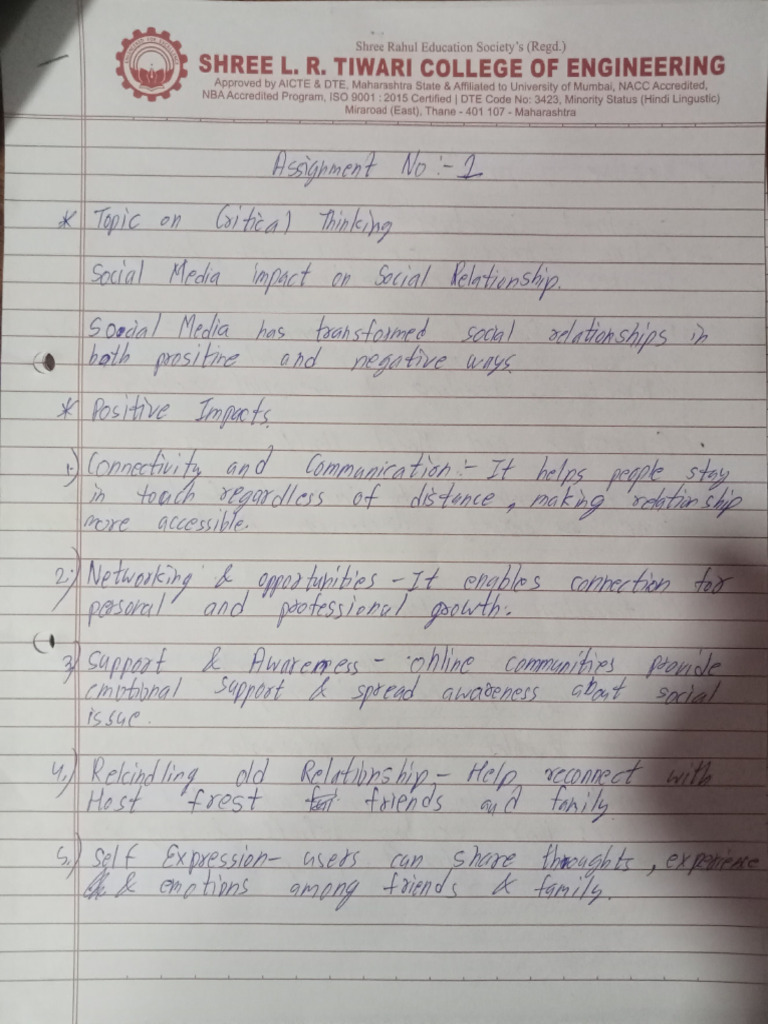 Shree Rahul Education Society's (Regd.)
SHREE L. R. TIWARI COLLEGE OF ENGINEERING
Approved by AICTE & DTE, Maharashtra State & Affiliated to University of Mumbai, NACC Accredited,
NBA Accredited Program, ISO 9001 : 2015 Certified | DTE Code No: 3423, Minority Status (Hindi Lingustic)
Miraroad (East), Thane - 401 107 - Maharashtra
Assignment No :- 1
* Topic on Critical Thinking
Social Media impact on Social Relationship.
Social Media has transformed social relationships in
both prositive and negative ways.
* Positive Impacts.
1.) Connectivity and Communication :- It helps people stay
in touch regardless of distance, making relationship
more accessible.
2.) Networking & opportunities - It enables connection for
personal and professional growth.
3.) Support & Awareness - online communities provide
emotional support & spread awareness about social
issue.
4.) Rekindling old Relationship - Help reconnect with
Host frest friends and family
5.) Self Expression - users can share thoughts, experience
& emotions among friends & family.